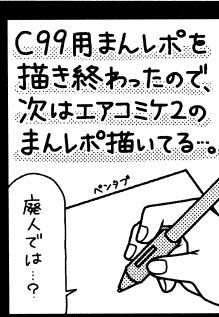 C99用まんレポを
描き終わったので、
次はエアコミケ2の
まんレポ描いてる…。
ペンタブ
廃人では…?